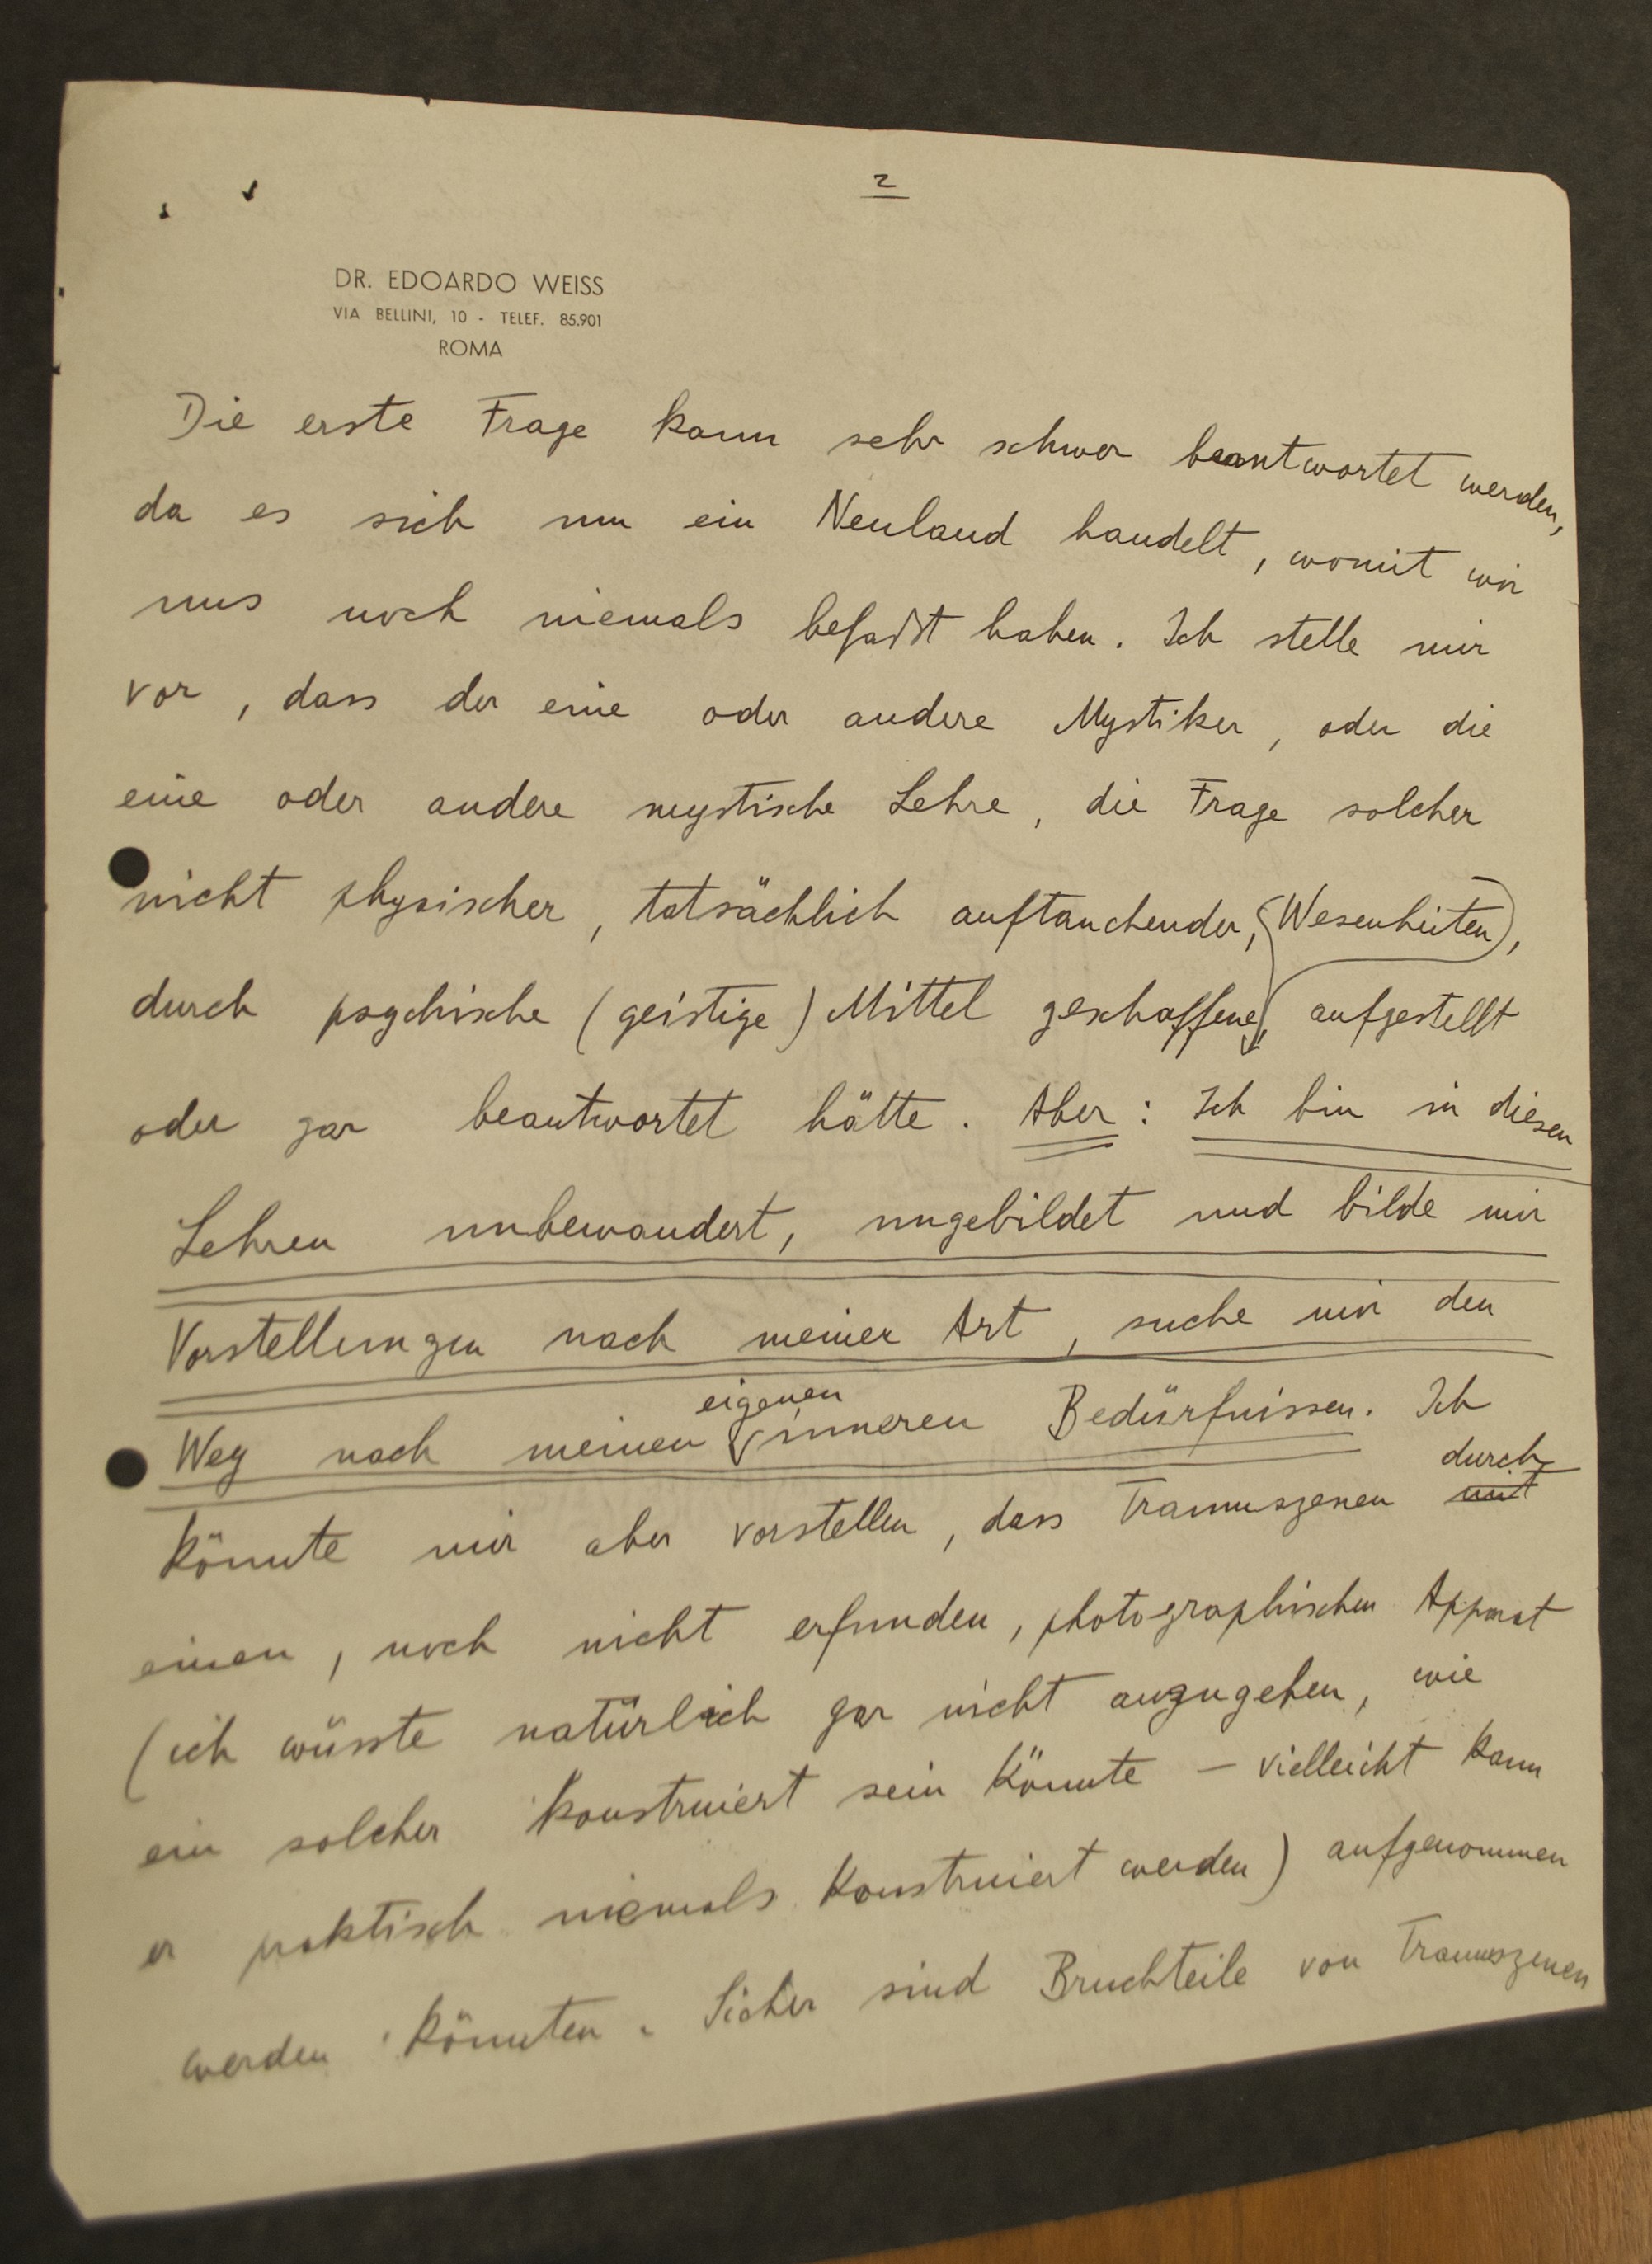 2
DR. EDOARDO WEISS
VIA BELLINI, 10 - TELEF. 85.901
ROMA
Die erste Frage kann sehr schwer beantwortet werden,
da es sich um ein Neuland handelt, womit wir
uns noch niemals befasst haben. Ich stelle mir
vor, dass der eine oder andere Mystiker, oder die
eine oder andere mystische Lehre, die Frage solcher
nicht physischer, tatsächlich auftauchender, (Wesenheiten),
durch psychische (geistige) Mittel geschaffene, aufgestellt
oder gar beantwortet hätte. Aber: Ich bin in diesen
Lehren unbewandert, ungebildet und bilde mir
Vorstellungen nach meiner Art, suche mir den
eigenen
Weg nach meinen inneren Bedürfnissen. Ich
durch
könnte mir aber vorstellen, dass Traumszenen mit
einen, noch nicht erfunden, photographischen Apparat
(ich wüsste natürlich gar nicht anzugeben, wie
ein solcher konstruiert sein könnte – vielleicht kann
er praktisch niemals konstruiert werden) aufgenommen
werden könnten. Sicher sind Bruchteile von Traumszenen